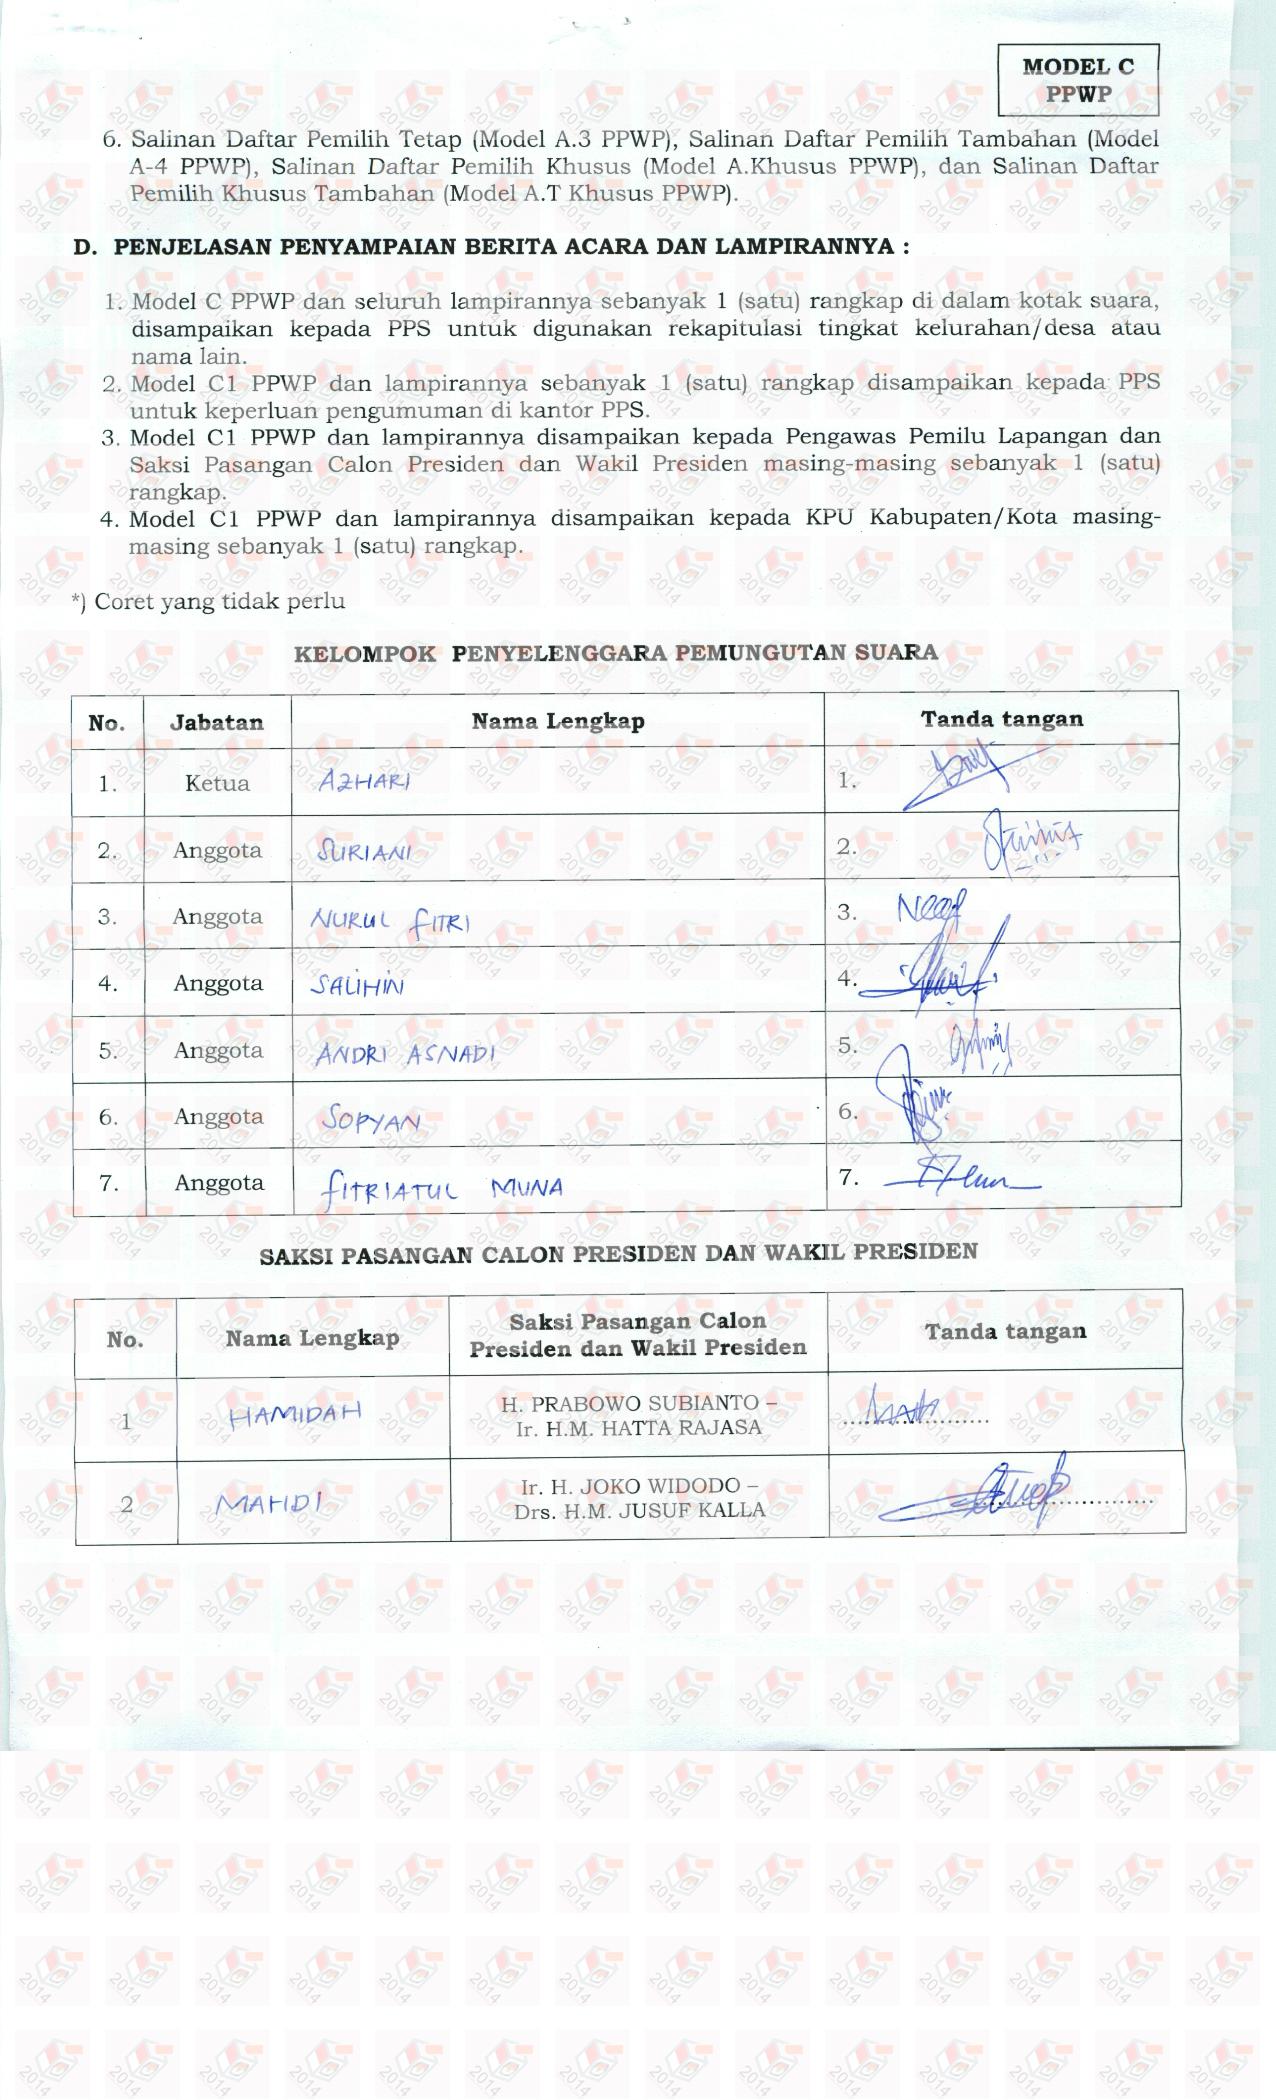 MODEL C
PPWP
6. Salinan Daftar Pemilih Tetap (Model A.3 PPWP), Salinan Daftar Pemilih Tambahan (Model
A-4 PPWP), Salinan Daftar Pemilih Khusus (Model A.Khusus PPWP), dan Salinan Daftar
Pemilih Khusus Tambahan (Model A.T Khusus PPWP).
D. PENJELASAN PENYAMPAIAN BERITA ACARA DAN LAMPIRANNYA :
1. Model C PPWP dan seluruh lampirannya sebanyak 1 (satu) rangkap di dalam kotak suara,
disampaikan kepada PPS untuk digunakan rekapitulasi tingkat kelurahan/desa atau
nama lain.
2. Model C1 PPWP dan lampirannya sebanyak 1 (satu) rangkap disampaikan kepada PPS
untuk keperluan pengumuman di kantor PPS.
3. Model C1 PPWP dan lampirannya disampaikan kepada Pengawas Pemilu Lapangan dan
Saksi Pasangan Calon Presiden dan Wakil Presiden masing-masing sebanyak 1 (satu)
rangkap.
4. Model C1 PPWP dan lampirannya disampaikan kepada KPU Kabupaten/Kota masing-
masing sebanyak 1 (satu) rangkap.
*) Coret yang tidak perlu
KELOMPOK PENYELENGGARA PEMUNGUTAN SUARA
No. Jabatan Nama Lengkap Tanda tangan
1. Ketua AZHARI 1.
2. Anggota SURIANI 2.
3. Anggota NURUL FITRI 3.
4. Anggota SALIHIN 4.
5. Anggota ANDRI ASNADI 5.
6. Anggota SOPYAN 6.
7. Anggota FITRIATUL MUNA 7.
SAKSI PASANGAN CALON PRESIDEN DAN WAKIL PRESIDEN
No. Nama Lengkap Saksi Pasangan Calon Presiden dan Wakil Presiden Tanda tangan
1 HAMIDAH H. PRABOWO SUBIANTO –
Ir. H.M. HATTA RAJASA
2 MAHDI Ir. H. JOKO WIDODO –
Drs. H.M. JUSUF KALLA